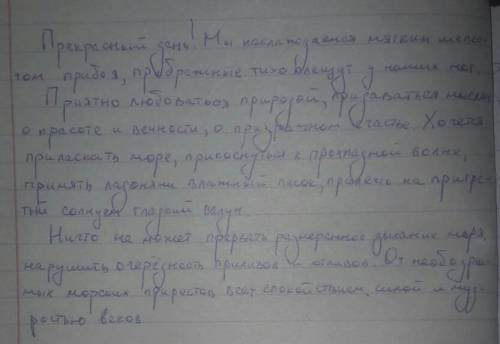 Прекрасный день! Мы наслаждаемся мягким шелес-
том прибоя, прибрежные тихо плещут у наших ног.
Приятно любоваться природой, предаваться мыслям
о красоте и вечности, о призрачном счастье. Хочется
приласкать море, прикоснуться к прохладной волне,
принять ладонями влажный песок, прилечь на пригре-
тый солнцем гладкий валун.
Ничто не может прервать размеренное дыхание моря,
нарушить очерёдность приливов и отливов. От необозри-
мых морских просторов веет спокойствием, силой и муд-
ростью веков